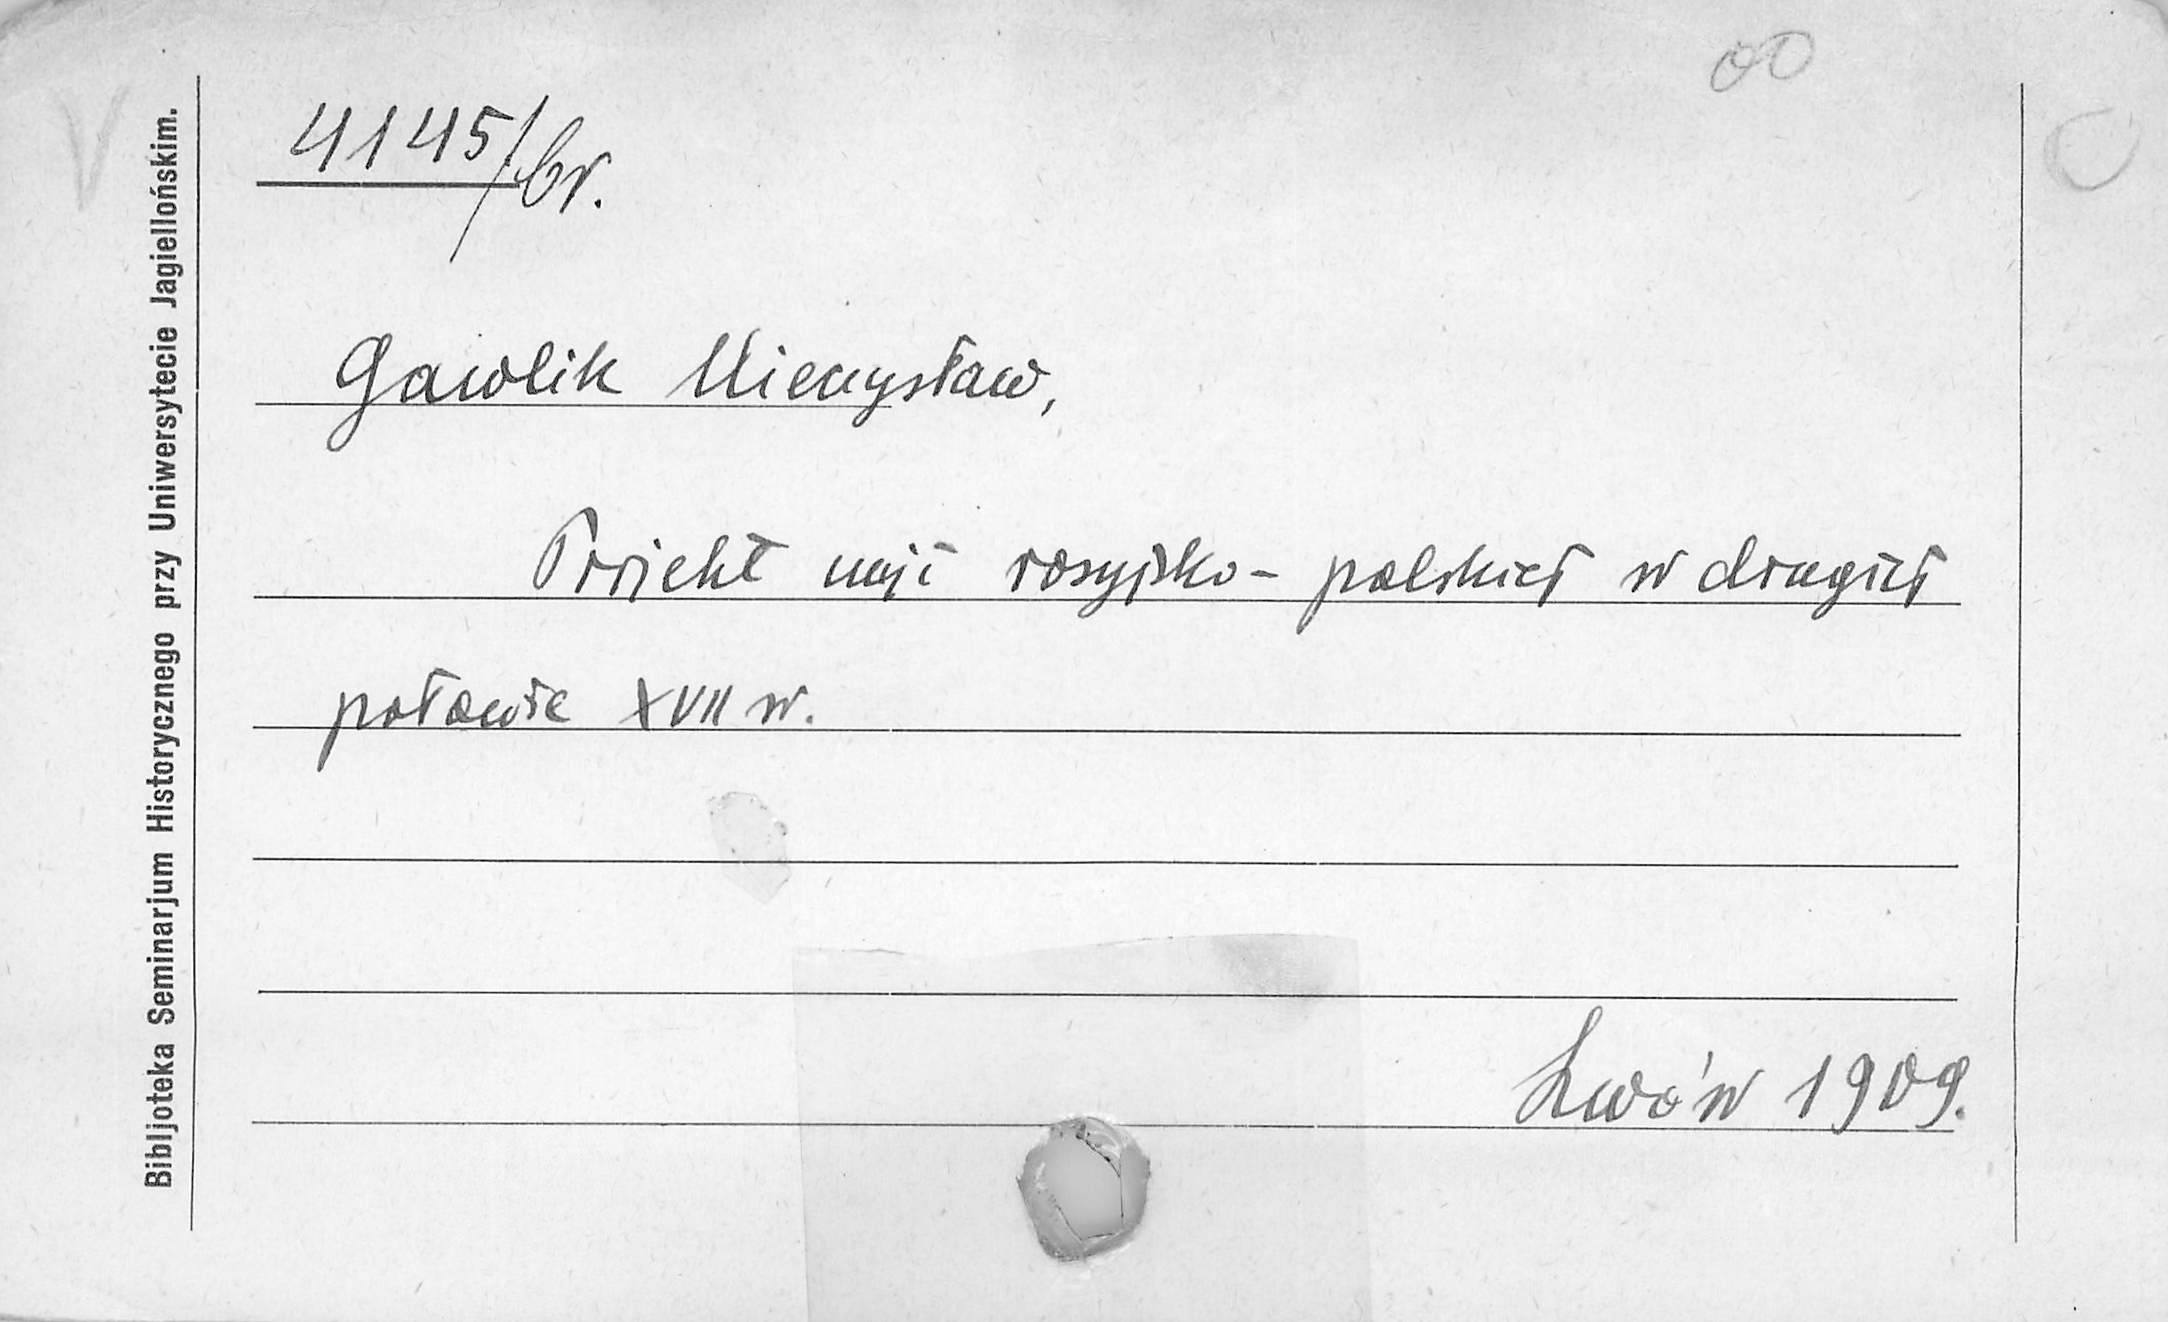 4145/br.
Gawlik Mieczysław,
Projekt unji rosyjsko-polskiej w drugiej
połowie XVII w.
Lwów 1909.
Bibljoteka Seminarjum Historycznego przy Uniwersytecie Jagiellońskim.